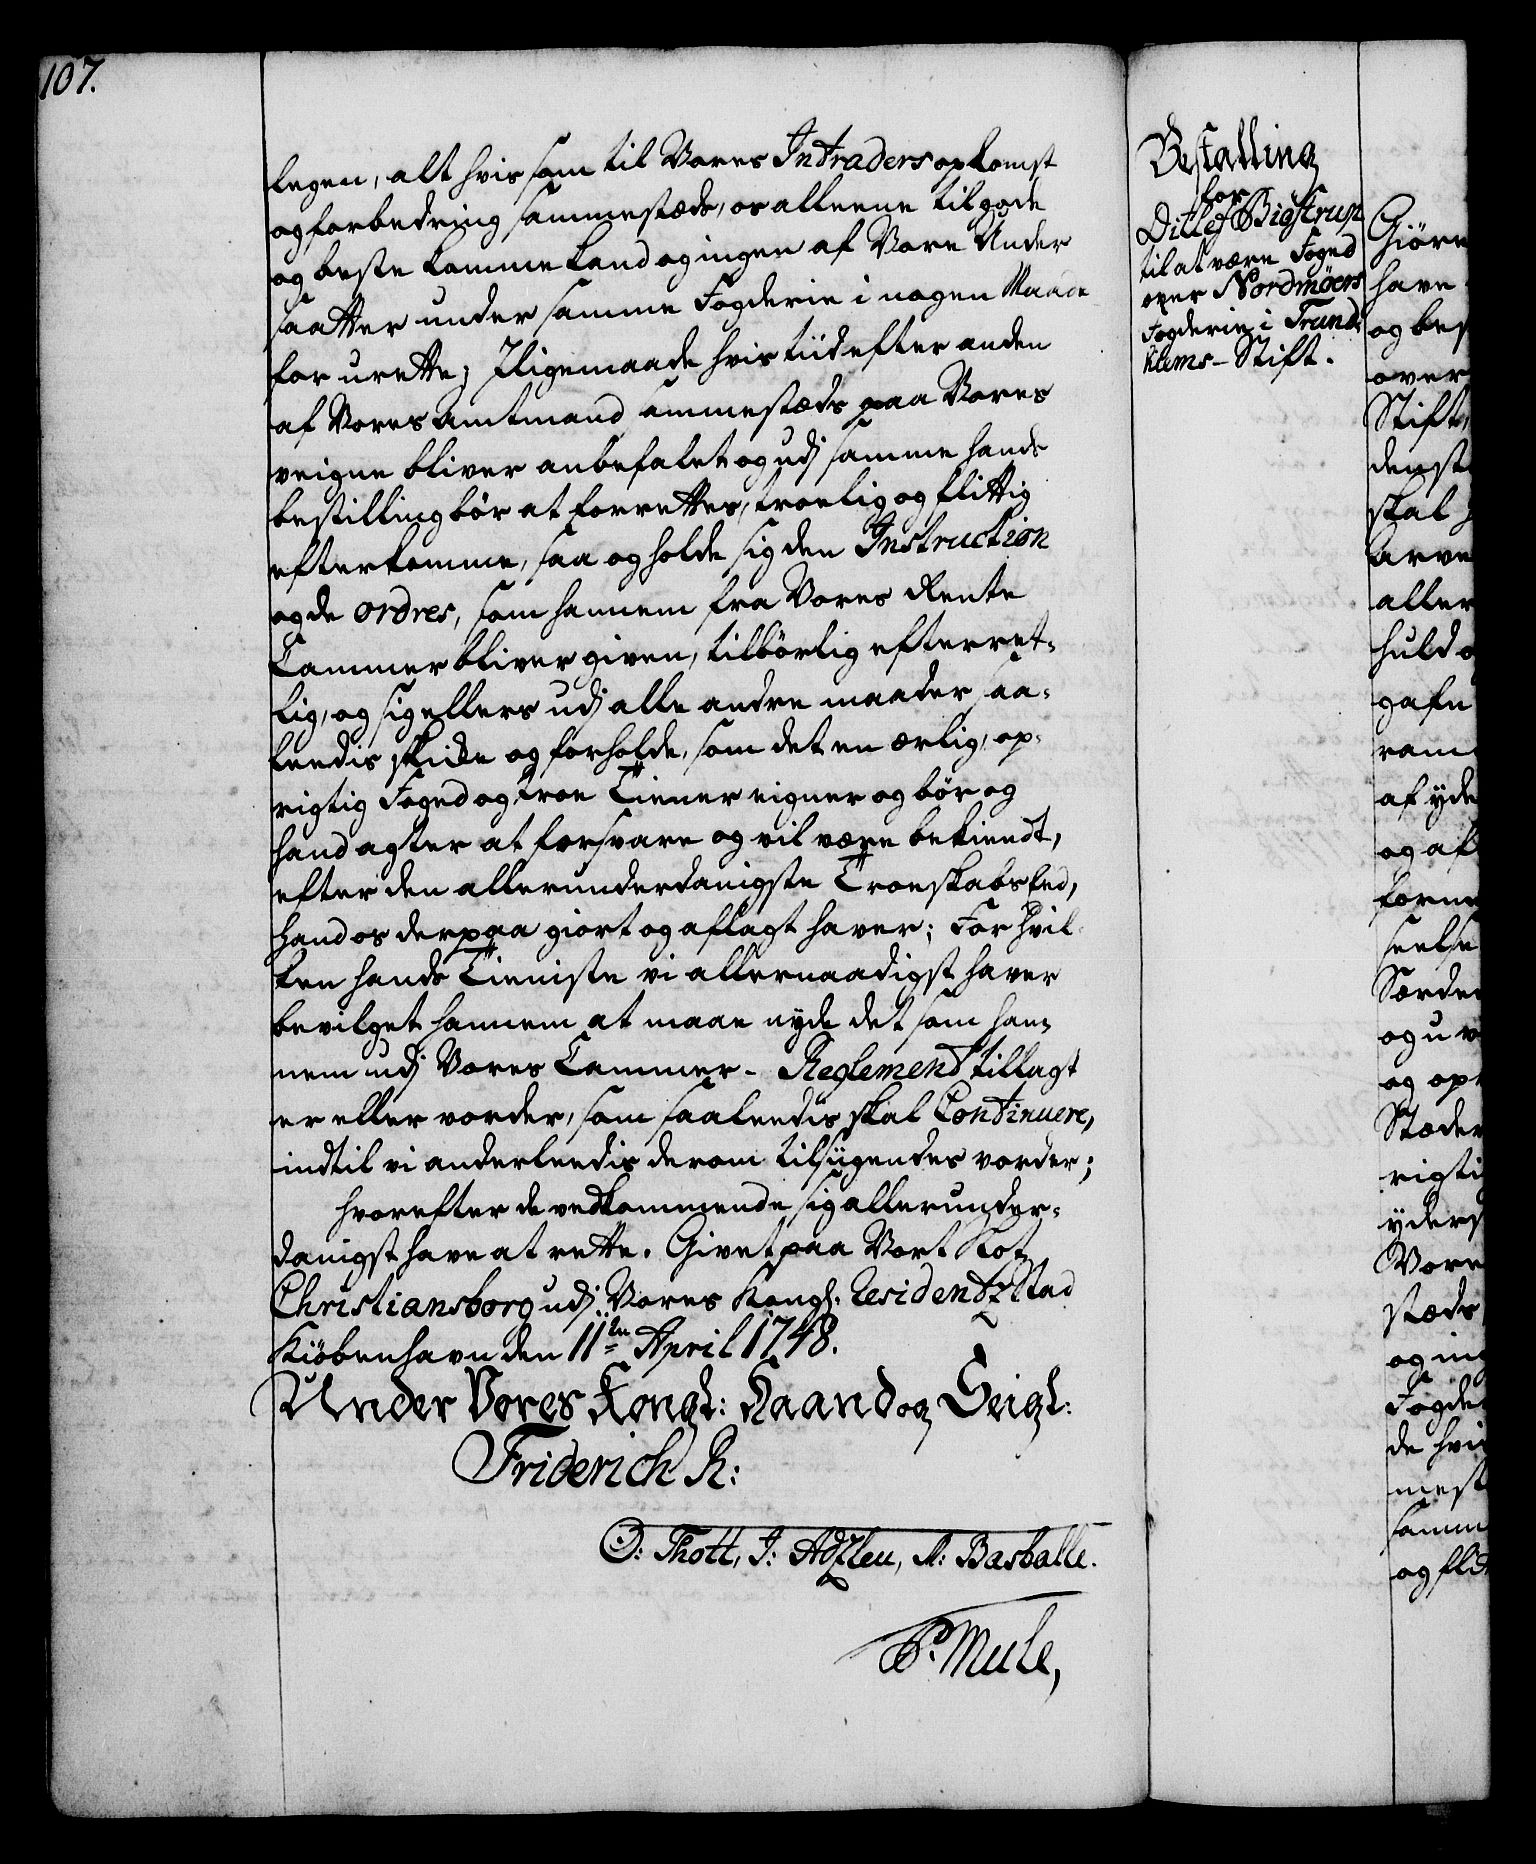 107.
legen, alt hvis som til Vores Intraders opkomst
og forbedring sammestæds, os alleene til gode
og beste komme kand og ingen af Vore Under
saatter under samme Fogderie i nogen Maade
for urette; Iligemaade hvis tiid efter anden
af Vores Amtmand sammestæds paa Vores
veigne bliver anbefalet og udj samme hands
bestilling bør at forrettes, troelig og flittig
efterkomme, saa og holde sig den Instruction
og de ordres, som hannem fra Vores Rente
Cammer bliver given, tilbørlig efterret-
lig, og sig ellers udj alle andre maader saa-
leedis skicke og forholde, som det en ærlig, op-
rigtig Foged og troe Tiener eigner og bør og
hand agter at forsvare og vil være bekiendt,
efter den allerunderdanigste Troeskabs Eed,
hand os derpaa giort og aflagt haver; For hvil-
ken hands Tieniste vi allernaadigst haver
bevilget hannem at maae nyde det som han-
nem udj Vores Cammer-Reglement tillagt
er eller vorder, som saaleedis skal Continuere,
indtil vi anderleedis derom tilsiigendes vorder;
hvorefter de vedkommende sig allerunder-
danigst have at rette. Givet paa Vort Slot
Christiansborg udj Vores Kongl: Residentz Stad
Kiøbenhavn den 11ten April 1748.
Under Vores Kongl: Haand og Seigl:
Friderich R:
O: Thott, J: Adzleu, A: Basballe.
P. Mule,
Bestalling
for
Ditlef Bigstrup
til at være Foged
over Nordmøers
Fogderie i Trund-
hiems-Stift.
Giøre
have
og bes
over
Stift,
denst
skal
arve
aller
huld o
gafn
ram
af yde
og af
forne
seelse
Særde
og u v
og opr
Stæder
rigti
yders
Vore
stæds
og ing
Fogde
de hvi
mest
samm
og flit